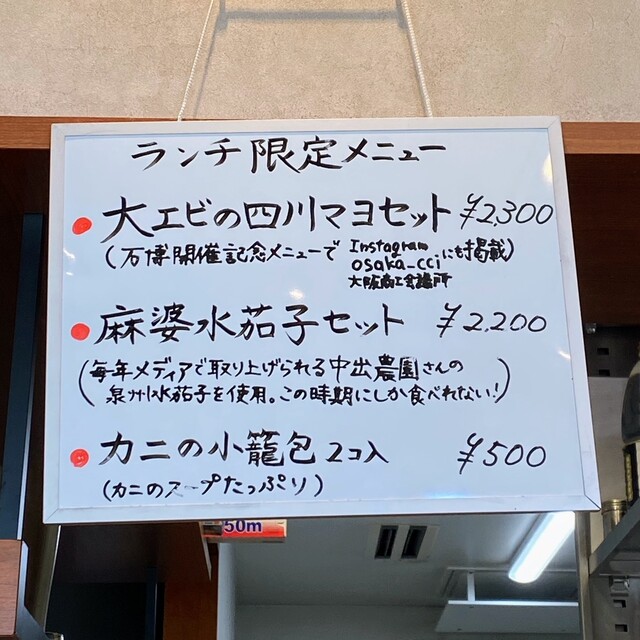 ランチ限定メニュー
大エビの四川マヨセット ¥2,300
(万博開催記念メニューで Instagram osaka_cci 大阪商工会議所 にも掲載)
麻婆水茄子セット ¥2,200
(毎年メディアで取り上げられる中出農園さんの
泉州水茄子を使用。この時期にしか食べれない!)
カニの小籠包 2コ入 ¥500
(カニのスープたっぷり)
50m